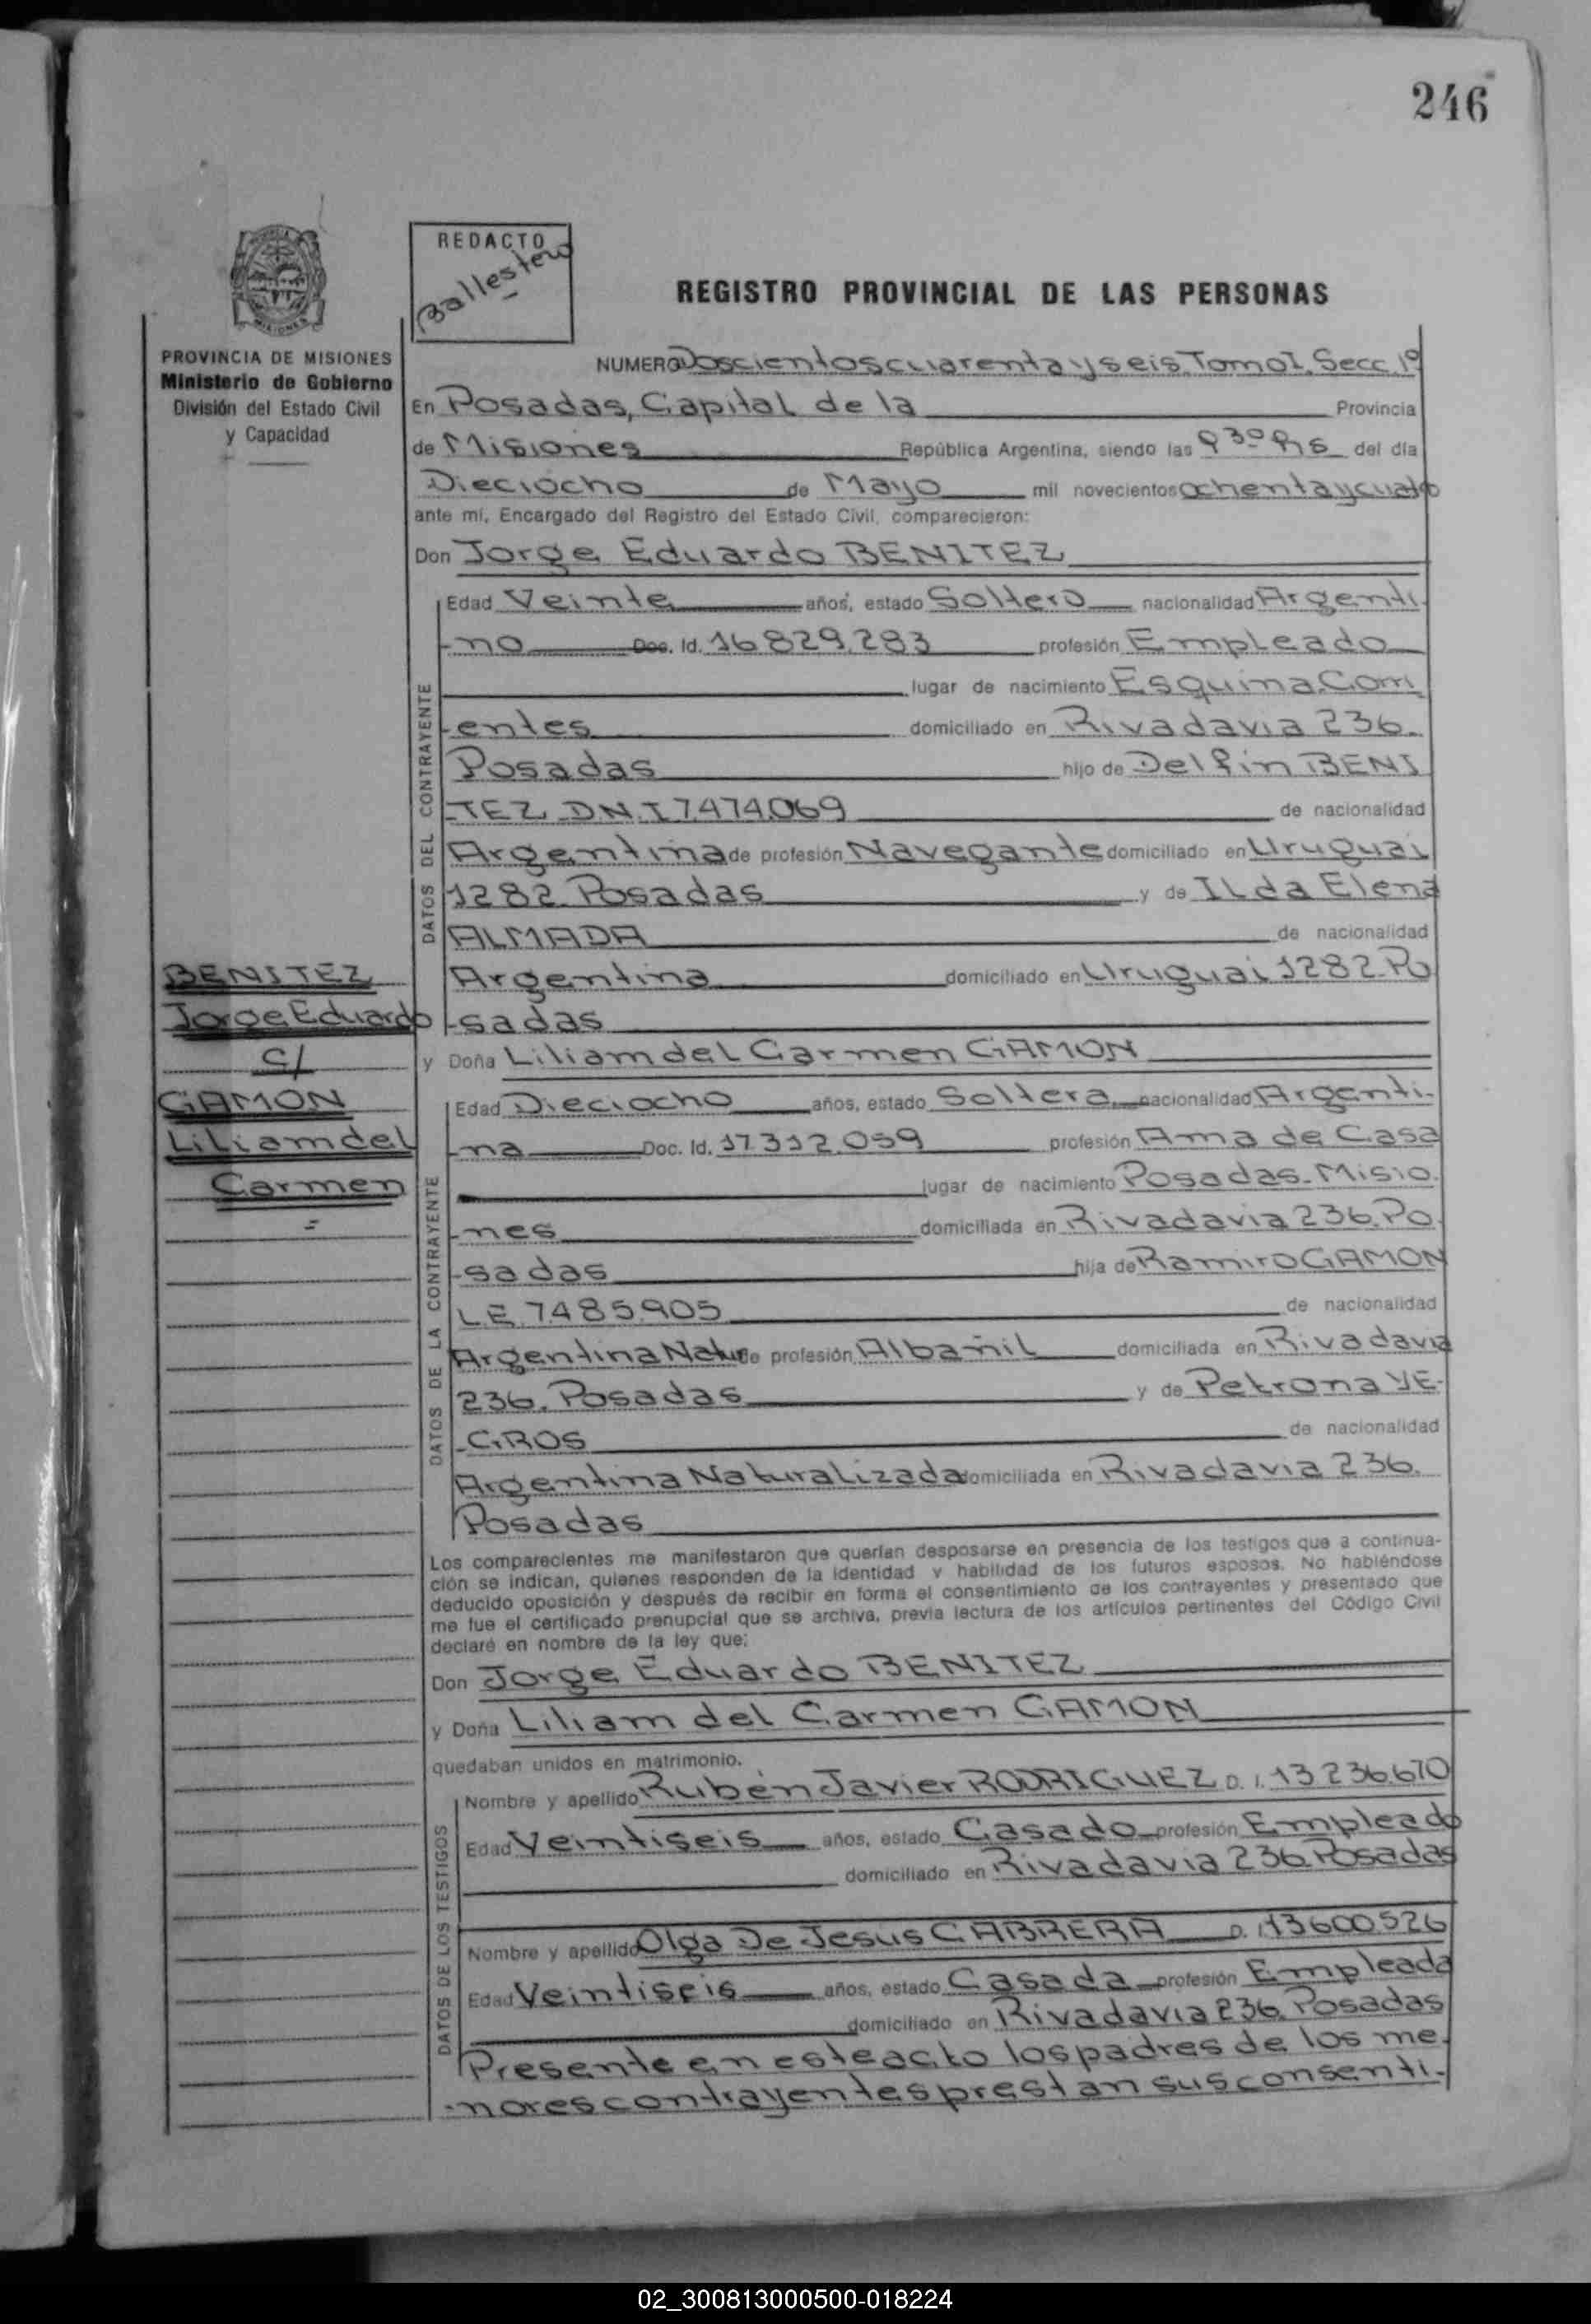 246
REDACTO
Ballestero
REGISTRO PROVINCIAL DE LAS PERSONAS
PROVINCIA DE MISIONES
Ministerio de Gobierno
División del Estado Civil
y Capacidad
NUMERO Doscientos cuarenta y seis. Tomo I. Secc. 1º
En Posadas, Capital de la Provincia
de Misiones República Argentina, siendo las 9 30 Hs del día
Dieciocho de Mayo mil novecientos ochenta y cuatro
ante mí, Encargado del Registro del Estado Civil, comparecieron:
Don Jorge Eduardo BENITEZ
DATOS DEL CONTRAYENTE
Edad Veinte años, estado Soltero nacionalidad Argenti-
-no Doc. Id. 16.829.283 profesión Empleado
lugar de nacimiento Esquina. Corri
-entes domiciliado en Rivadavia 236.
Posadas hijo de Delfin BENI
-TEZ. D.N.I 7.474.069 de nacionalidad
Argentina de profesión Navegante domiciliado en Uruguai
1282. Posadas y de ILda Elena
ALMADA de nacionalidad
Argentina domiciliado en Uruguai 1282. Po
-sadas
BENITEZ
Jorge Eduardo
c/
GAMON
Liliam del
Carmen
=
y Doña Liliam del Carmen GAMON
DATOS DE LA CONTRAYENTE
Edad Dieciocho años, estado Soltera nacionalidad Argenti-
-na Doc. Id. 17.312.059 profesión Ama de Casa
lugar de nacimiento Posadas. Misio.
-nes domiciliada en Rivadavia 236. Po.
-sadas hija de Ramiro GAMON
L.E. 7.485.905 de nacionalidad
Argentina Natur de profesión Albañil domiciliada en Rivadavia
236. Posadas y de Petrona YE-
-GROS de nacionalidad
Argentina Naturalizada domiciliada en Rivadavia 236.
Posadas
Los comparecientes me manifestaron que querían desposarse en presencia de los testigos que a continua-
ción se indican, quienes responden de la identidad y habilidad de los futuros esposos. No habiéndose
deducido oposición y después de recibir en forma el consentimiento de los contrayentes y presentado que
me fue el certificado prenupcial que se archiva, previa lectura de los artículos pertinentes del Código Civil
declaré en nombre de la ley que:
Don Jorge Eduardo BENITEZ
y Doña Liliam del Carmen GAMON
quedaban unidos en matrimonio.
DATOS DE LOS TESTIGOS
Nombre y apellido Rubén Javier RODRIGUEZ D. I. 13.236.670
Edad Veintiseis años, estado Casado profesión Empleado
domiciliado en Rivadavia 236. Posadas
Nombre y apellido Olga De Jesus CABRERA D. I 13600526
Edad Veintiseis años, estado Casada profesión Empleada
domiciliado en Rivadavia 236. Posadas
Presente en este acto los padres de los me.
-nores contrayentes prestan sus consenti-
02_300813000500-018224